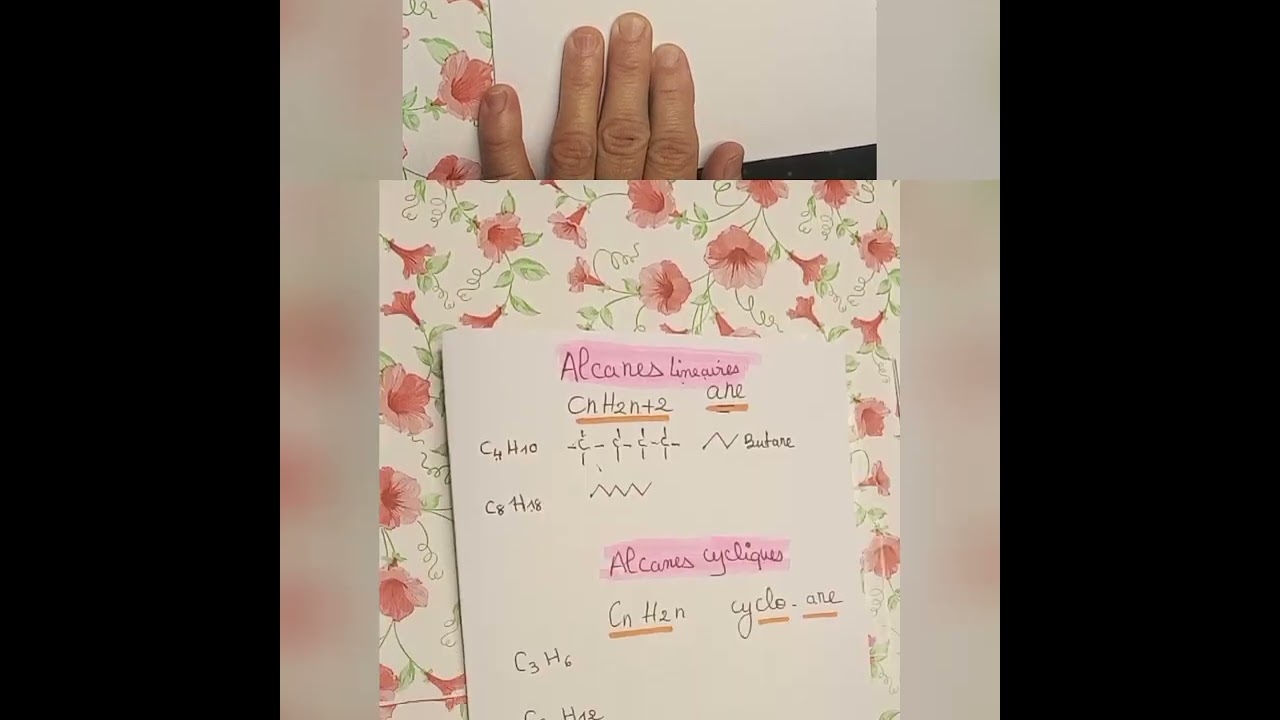 Alcanes Lineaires
CnH2n+2 ane
C4H10 -C-C-C-C- Butane
C8H18
Alcanes cycliques
CnH2n cyclo-ane
C3H6
H12